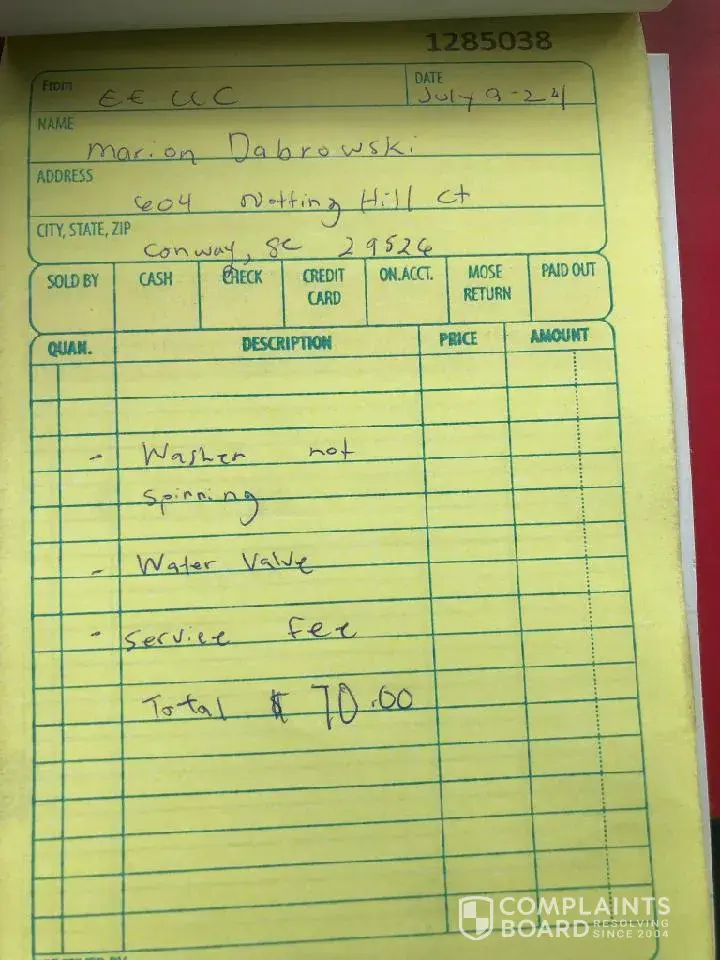 1285038
From EE LLC DATE July 9-24
NAME Marion Dabrowski
ADDRESS 604 Notting Hill Ct
CITY, STATE, ZIP Conway, SC 29526
SOLD BY CASH CHECK CREDIT CARD ON.ACCT. MOSE RETURN PAID OUT
QUAN. DESCRIPTION PRICE AMOUNT
- Washer not
spinning
- Water Valve
- Service Fee
Total $ 70.00
COMPLAINTS
BOARD RESOLVING
SINCE 2004